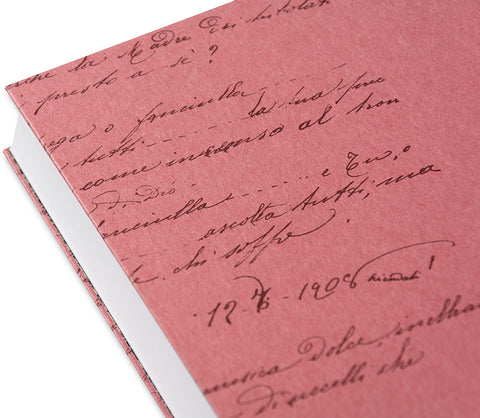 che la Madre
presto a sè?
o fanciulla
tutti la tua pre
come incenso al tron
di Dio
fanciulla e Tu, o
ascolta tutti, ma
chi soffe.
17-6-1908
musica dolce,
di uccelli che